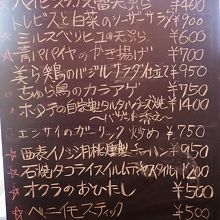 天ぷら ¥460
トレビスと白菜のシーザーサラダ ¥900
ミルスベリヒユの天ぷら ¥600
☆ 青パパイヤのかき揚げ ¥700
美ら鶏のバジルサラダ仕立て ¥950
ちゅら鶏のカラアゲ ¥750
ホタテの自家製タルタルチーズ焼 ¥1400
〜バゲット添え〜
エンサイのガーリック炒め ¥750
☆ 西表イノシシ チャーハン ¥950
☆ 石焼タコライス ¥1200
オクラのおひたし ¥500
☆ ベニーイモスティック ¥500